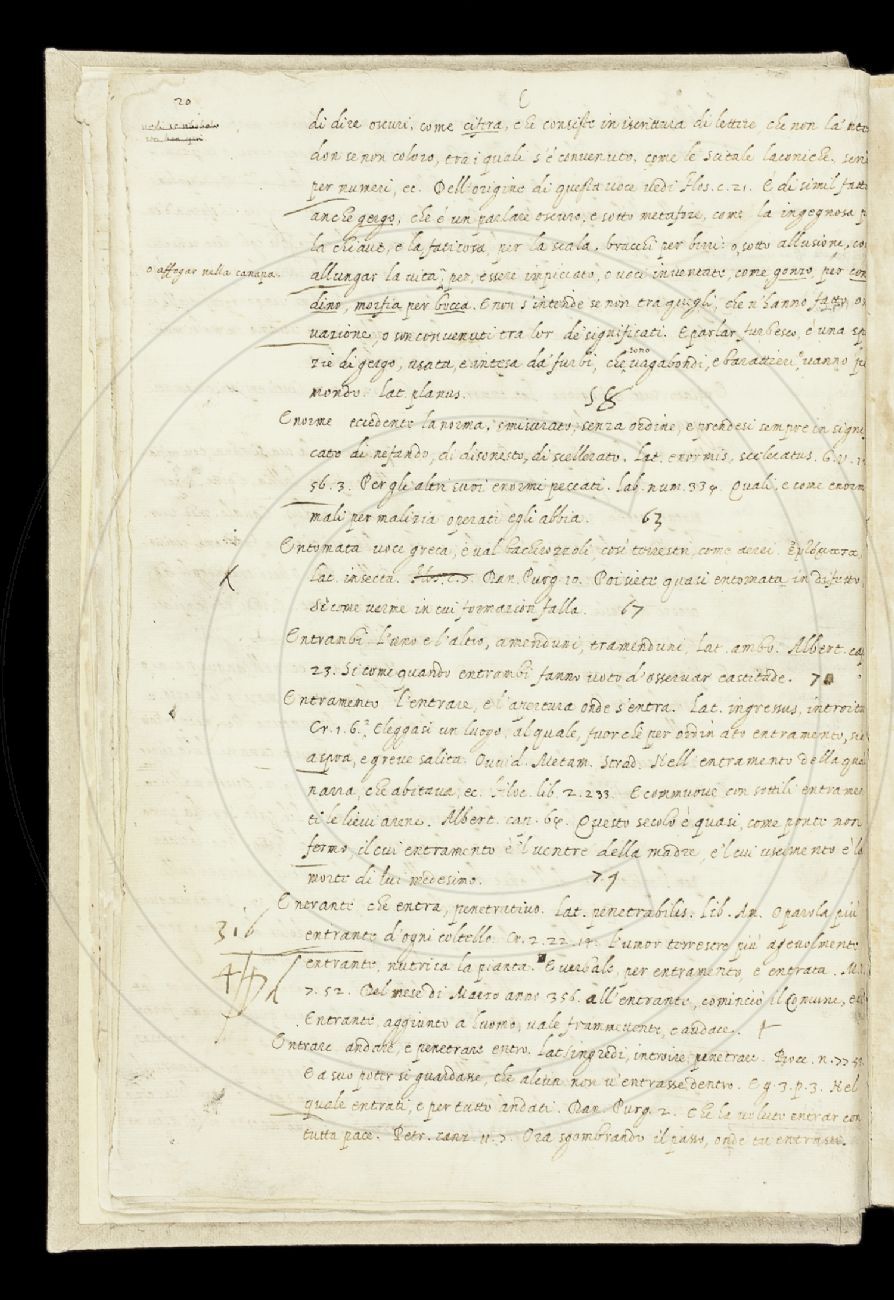 20
E
di dire oscuri, come cifra, che consiste in iscrittura di lettere che non la
don se non coloro, tra i quali s'è convenuto, come le scitale laconiche,
per numeri, ec. Dell'origine di questa voce vedi Flos. c. 21. E di simil fatta
anche gergo, che è un parlare oscuro, e sotto metafore, come la ingegnosa p
la chiave, e la faticosa, per la scala, bracchi per birri: o sotto allusione, co
o affogar nella canapa.
allungar la vita, per, essere impiccato, e voci inventate, come gonzo, per con
dino, morfia per bocca. E non s'intende se non tra quegli, che n'hanno fatto
vazione, o son convenuti tra lor de' significati. E parlar furbesco, è una sp
zie di gergo, usata, e intesa da' furbi, che sono vagabondi, e barattieri, vanno pe
mondo. lat. planus. 58
Enorme eccedente la norma, smisurato, senza ordine, e prendesi sempre in signi
cato di nefando, di disonesto, di scellerato. Lat. enormis, sceleratus. G. V.
56. 3. Per gli altri suoi enormi peccati. Lab. num. 334. Quali, e come enorm
mali per malizia operati egli abbia. 63
Entomata voce greca, e val bacherozzoli, così terrestri, come aerei.
X
lat. insecta. Dan. Purg. 10. Poi siete quasi entomata in difetto
Sì come verme in cui formazion falla. 67
Entrambi l'uno e l'altro, amenduni, tramenduni, Lat. ambo. Albert. cap
23. Sì come quando entrambi fanno voto d'osservar castitade. 70
Entramento l'entrare, e l'apertura onde s'entra. Lat. ingressus, introitu
Cr. 1. 6. 2. Eleggasi un luogo, al quale, fuorchè per ordinato entramento, sia
aspra, e greve salita. Ovvid. Metam. Strad. Nell'entramento della qua
naria, che abitava, ec. Filoc. lib. 2. 233. E commuove con sottili entramen
ti le lievi arene. Albert. cap. 64. Questo secolo è quasi, come ponte non
fermo, il cui entramento è 'l ventre della madre, e 'l cui uscimento è la
morte di lui medesimo. 74
Entrante che entra, penetrativo. Lat. penetrabilis. Lib. Am. O parola più
316
entrante d'ogni coltello. Cr. 2. 22. 14. L'umor terrestre più agevolmente
entrante, nutrica la pianta. E verbale, per entramento, e entrata. M.
7. 52. Del mese di Marzo anno 356. all'entrante, cominciò il Comune, e
Entrante aggiunto a luomo, vale frammettente, e audace.
Entrare andare, e penetrare entro. Lat. ingredi, introire, penetrare. Bocc. n. 77 52
E a suo poter si guardasse, che alcun non v'entrasse dentro. E g. 3. p. 3. Nel
quale entrati, e per tutto andati. Dan. Purg. 2. Che ha voluto entrar con
tutta pace. Petr. canz. 11. 7. Ora sgombrando il passo, onde tu entrasti.